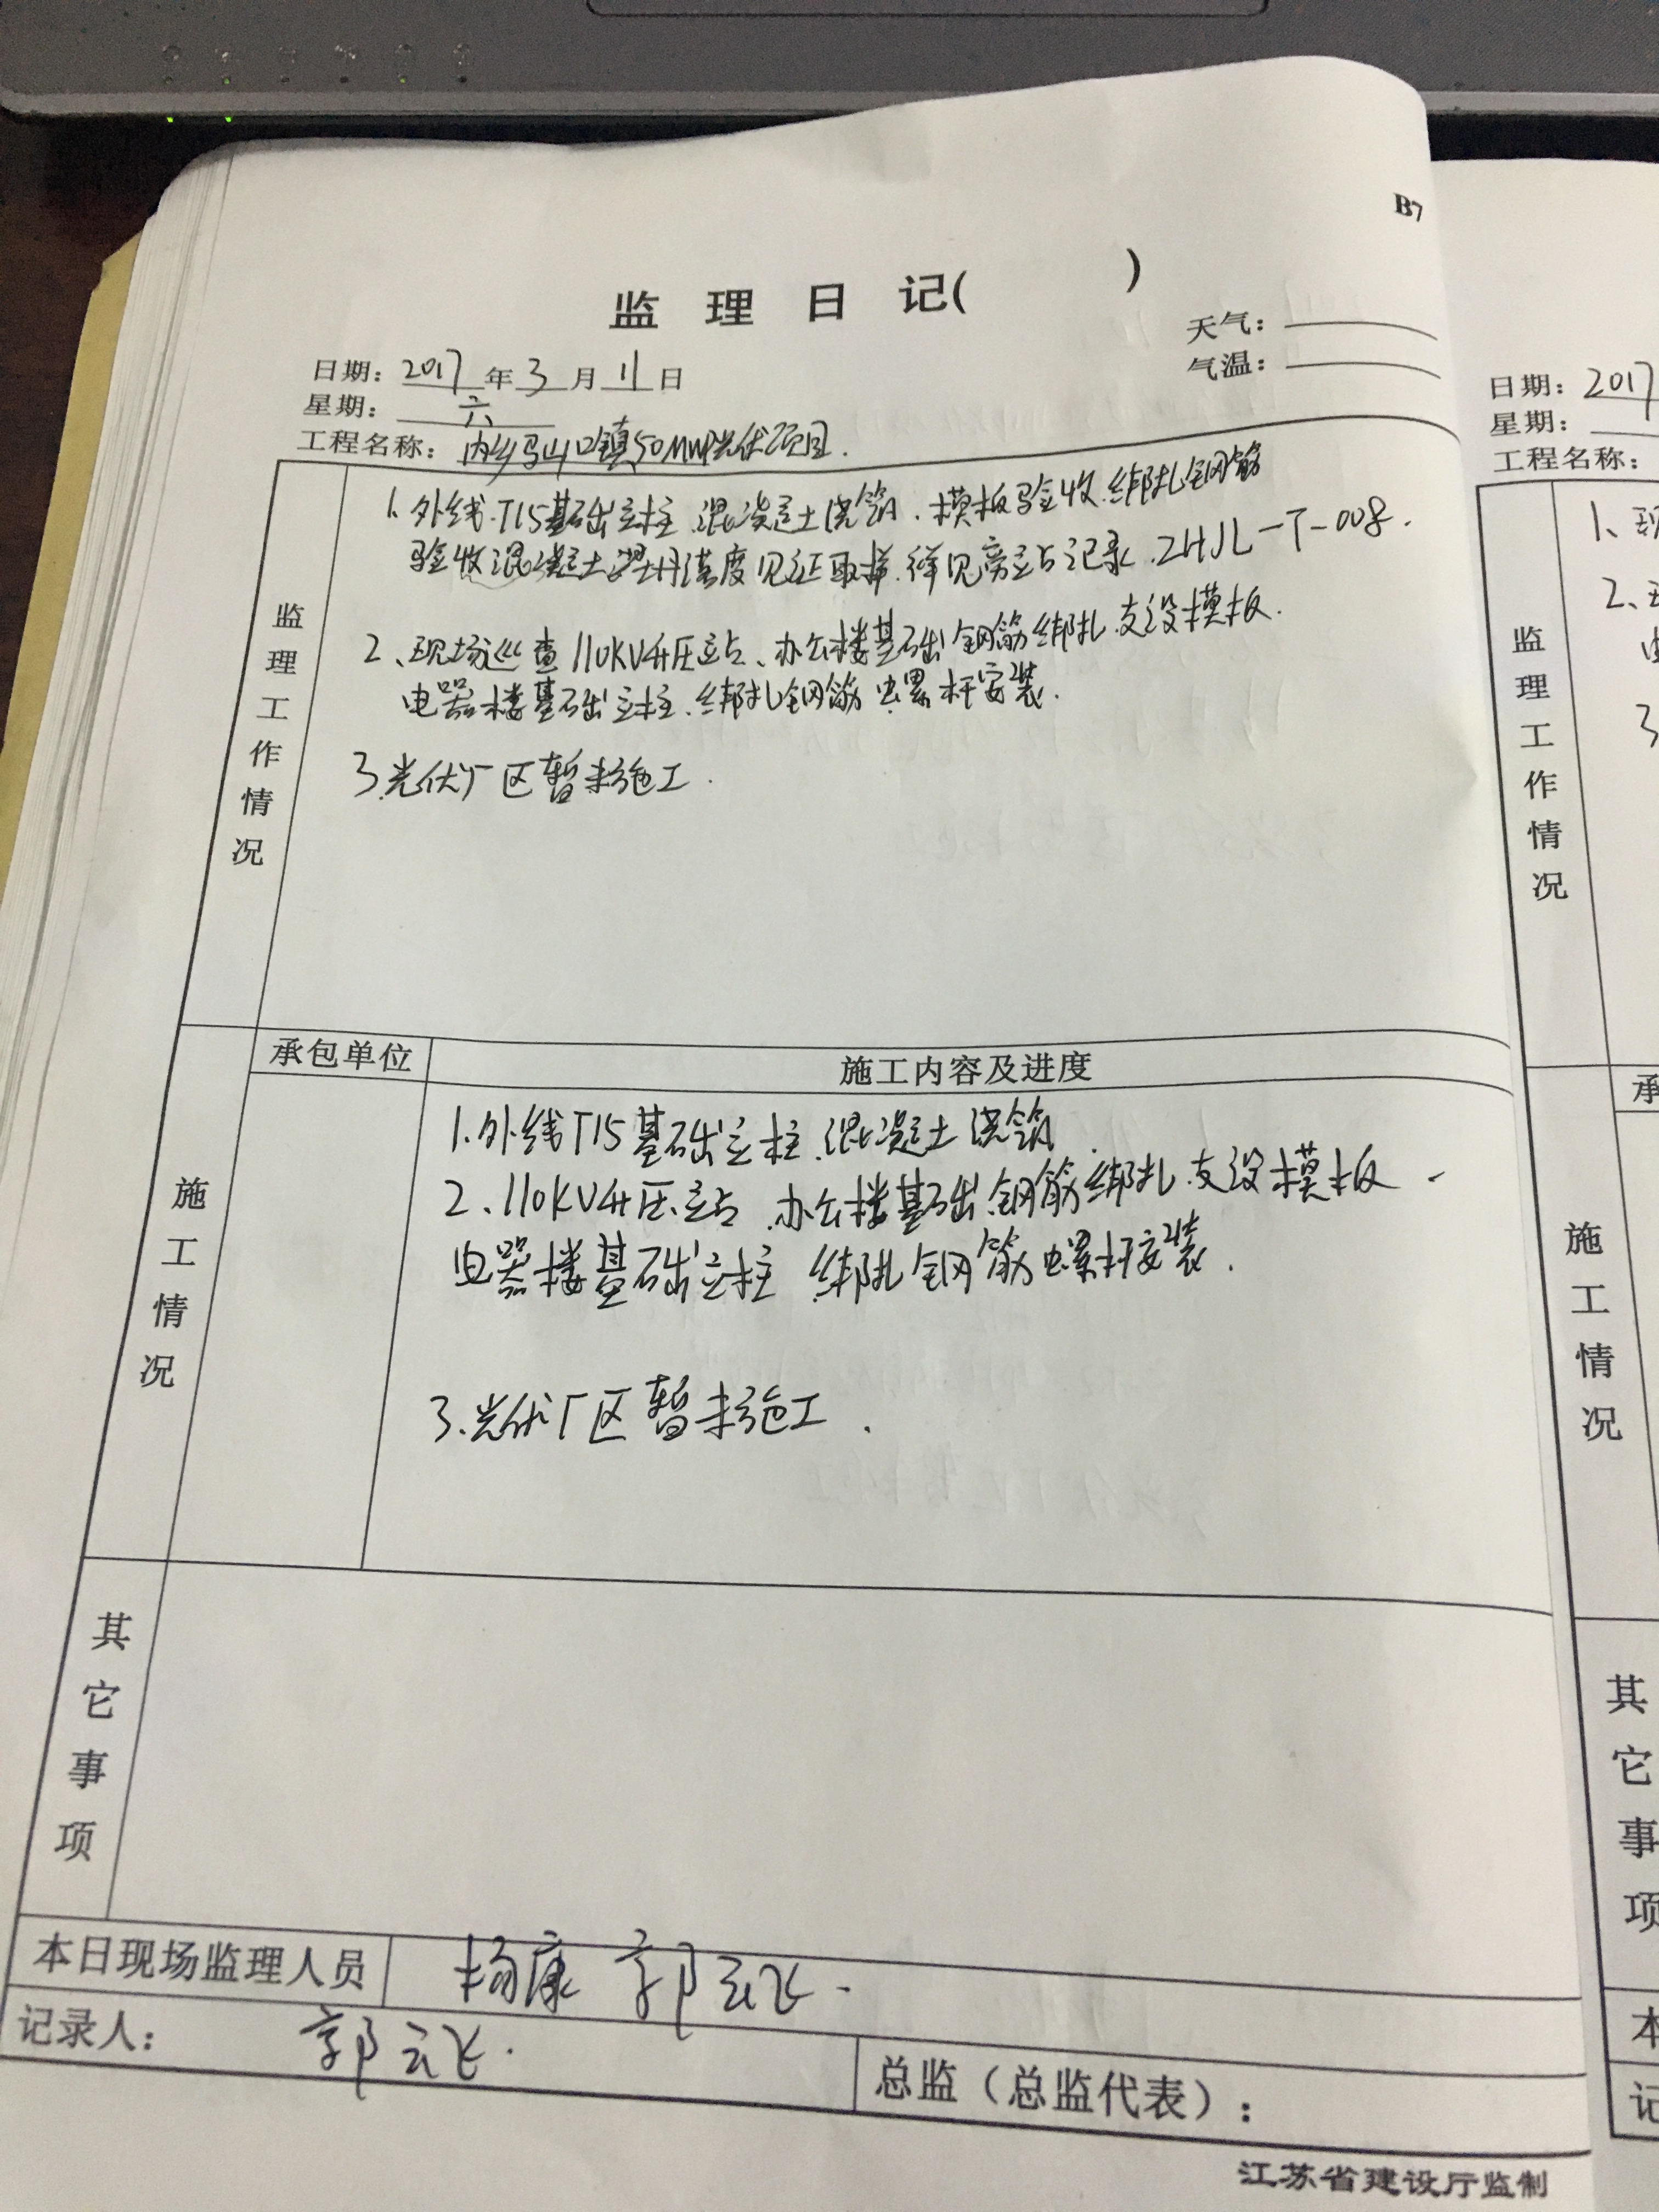 B7
监理日记( )
天气：
气温：
日期：2017年3月11日
星期：六
工程名称：内乡马山口镇50MWP光伏项目.
监理工作情况
1、外线T15基础立柱.混凝土浇筑.模板验收.绑扎钢筋
验收混凝土坍落度见证取样.详见旁站记录.ZHJL-T-008.
2、现场巡查110KV升压站、办公楼基础钢筋绑扎.支设模板.
电器楼基础立柱.绑扎钢筋螺杆安装.
3.光伏厂区暂未施工.
施工情况
承包单位
施工内容及进度
1.外线T15基础立柱.混凝土浇筑
2、110KV升压站.办公楼基础钢筋绑扎.支设模板
电器楼基础立柱 绑扎钢筋螺杆安装.
3.光伏厂区暂未施工.
其它事项
本日现场监理人员 杨康 郭云飞.
记录人：郭云飞.
总监（总监代表）：
江苏省建设厅监制
日期：2017
星期：
工程名称：
监理工作情况
1、现
2、
3
承
施工情况
其它事项
本
记